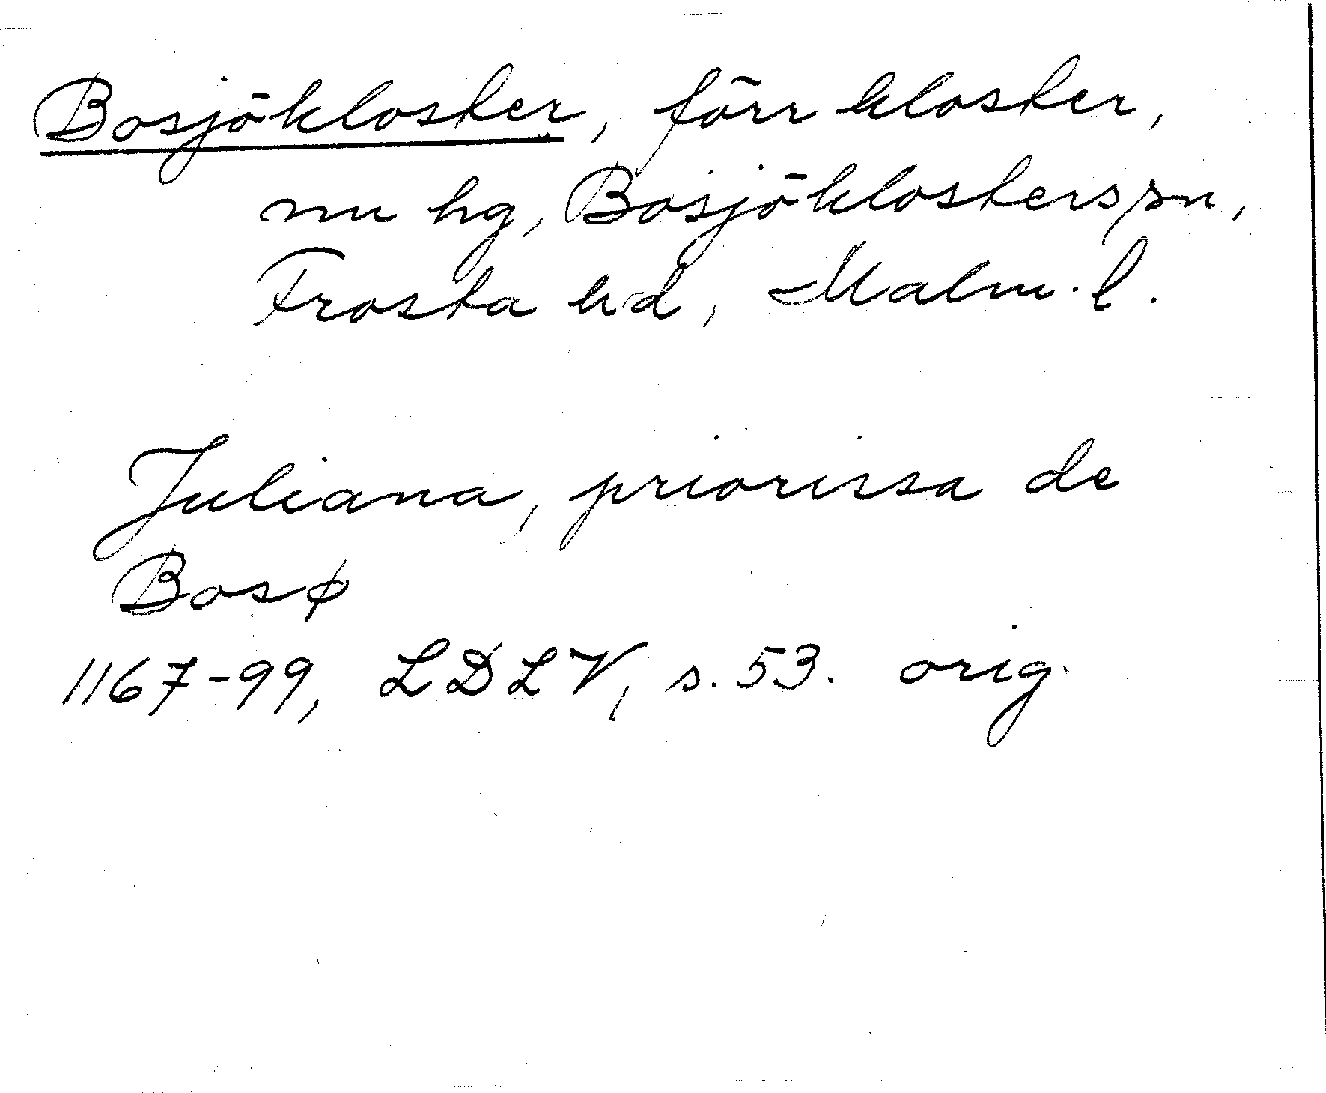 Bosjökloster, förr kloster,
nu hg, Bosjöklosters sn,
Frosta hd, Malm. l.
Juliana, priorissa de
Bosø
1167-99, LDLV, s. 53. orig.